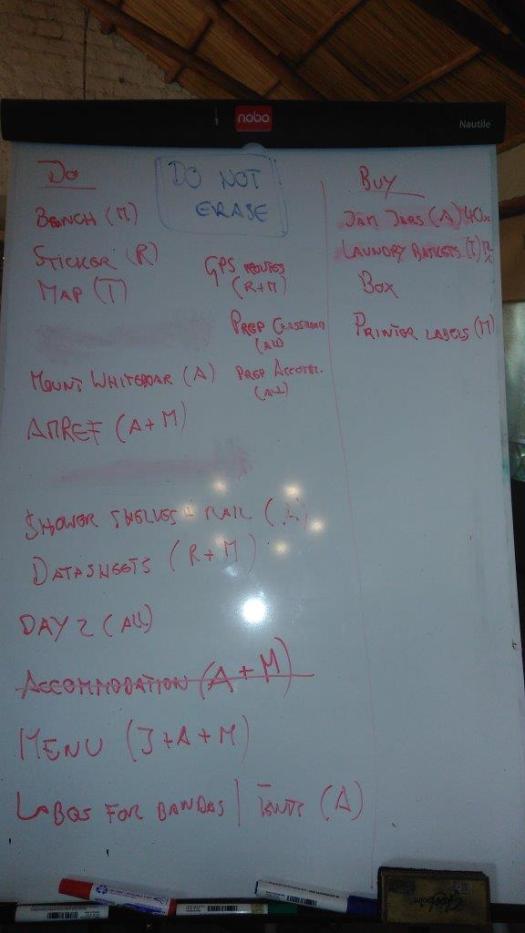 nobo
Nautile
Do
DO NOT
ERASE
BENCH (M)
STICKER (R)
MAP (T)
GPS ROUTES
(R+M)
PREP CLASSROOM
(ALL)
MOUNT WHITEBOAR (A)
PREP ACCOM.
(ALL)
AMREF (A+M)
SHOWER SHELVES + RAIL
DATASHEETS (R+M)
DAY 2 (ALL)
ACCOMMODATION (A+M)
MENU (J+A+M)
LABOS FOR BANDAS | TENTS (A)
BUY
JAM JARS (A) 40x
LAUNDRY BASKETS
BOX
PRINTER LABELS (M)